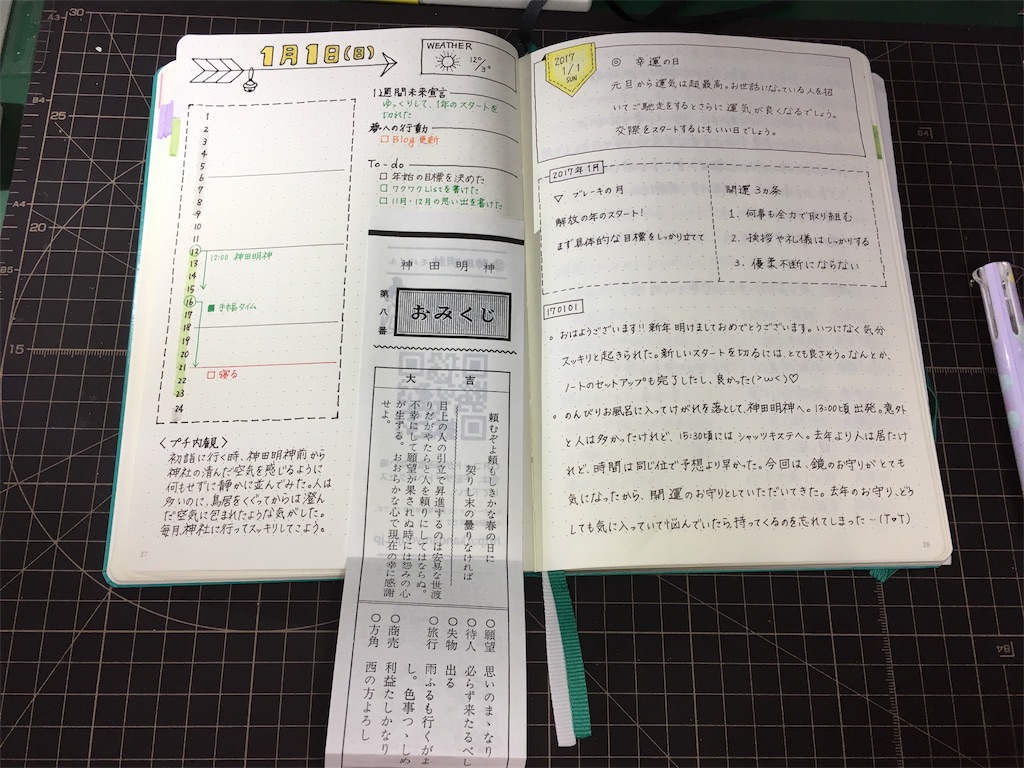 1月1日(日)
WEATHER
12°/3°
1週間未来宣言
ゆっくりして、1年のスタートを
切れた
夢への行動
□ Blog 更新
To-do
□ 年始の目標を決めた
□ ワクワクListを書けた
□ 11月・12月の思い出を書けた
1
2
3
4
5
6
7
8
9
10
11
12
13
14
15
16
17
18
19
20
21
22
23
24
12:00 神田明神
■ 手帳タイム
□ 寝る
<プチ内観>
初詣に行く時、神田明神前から
神社の清んだ空気を感じるように
何もせずに静かに並んでみた。人は
多いのに、鳥居をくぐってからは澄ん
だ空気に包まれたような気がした。
毎月、神社に行ってスッキリしてこよう。
27
神田明神
第八番
おみくじ
大吉
頼むぞよ頼もしきかな春の日に
契りし末の曇りなければ
目上の人の引立で昇進するのは安易な世渡
りだがやたらと人を頼りにしてはならぬ。
不幸にして願望が果されぬ時には怨みの心
が生ずる。おおらかな心で現在の幸に感謝
せよ。
○願望 思いのまゝなり
○待人 必らず来たるべし
○失物 出る
○旅行 雨ふるも行くがよ
し。色事つゝしめ
○商売 利益たしかなり
○方角 西の方よろし
2017
1/1
SUN
◎ 幸運の日
元旦から運気は超最高。お世話になっている人を招
いてご馳走をするとさらに運気が良くなるでしょう。
交際をスタートするにもいい日でしょう。
2017年1月
▽ ブレーキの月
解放の年のスタート!
まず具体的な目標をしっかり立てて
開運 3ヵ条
1. 何事も全力で取り組む
2. 挨拶や礼儀はしっかりする
3. 優柔不断にならない
170101
。おはようございます!! 新年明けましておめでとうございます。いつになく気分
スッキリと起きられた。新しいスタートを切るには、とても良さそう。なんとか、
ノートのセットアップも完了したし、良かった(>ω<)♡
。のんびりお風呂に入ってけがれを落として、神田明神へ。13:00頃 出発。意外
と人は多かったけれど、15:30頃には シャッツキステへ。去年より人は居たけ
れど、時間は同じ位で予想より早かった。今回は、鏡のお守りがとても
気になったから、開運のお守りとしていただいてきた。去年のお守り、どう
しても気に入っていて悩んでいたら持ってくるのを忘れてしまった…(T▽T)
28
30
25
20
15
A3
B4
A4
B5
B4
B4